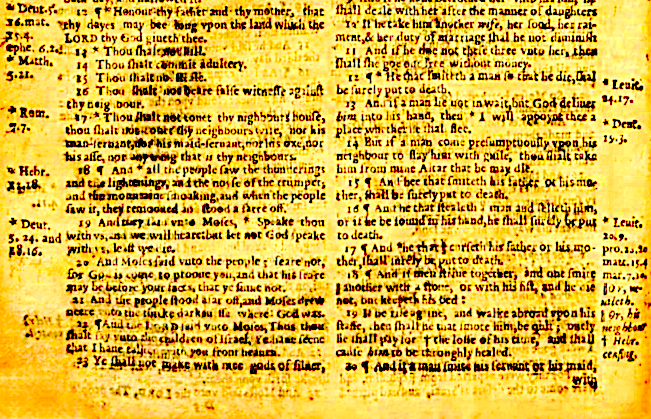 * Deut.5.
16.mat.
15.4.
ephe. 6.2.
* Matth.
5.21.
* Rom.
7.7.
* Hebr.
12.18.
* Deut.
5. 24. and
18.16.
12 ¶ * Honour thy father and thy mother, that
thy dayes may bee long vpon the land which the
LORD thy God giueth thee.
13 * Thou ſhalt not kill.
14 Thou ſhalt commit adultery.
15 Thou ſhalt not ſteale.
16 Thou ſhalt not beare falſe witneſſe againſt
thy neighbour.
17 * Thou ſhalt not couet thy nighbours houſe,
thou ſhalt not couet thy neighbours wife, nor his
man-ſeruant, nor his maid-ſeruant, nor his oxe, nor
his aſſe, nor any thing that is thy neighbours.
18 ¶ And * all the people ſaw the thunderings
and the lightenings, and the noiſe of the trumpet,
and the mountaine ſmoaking, and when the people
ſaw it, they remooued and ſtood a farre off.
19 And they ſaid vnto Moſes, * Speake thou
with vs, and we will heare: but let not God ſpeake
with vs, leaſt we die.
20 And Moſes ſaid vnto the people; feare not,
for God is come to prooue you, and that his feare
may be before your faces, that ye ſinne not.
21 And the people ſtood afar off, and Moſes drew
neere vnto the thicke darkneſſe where God was.
22 ¶ And the LORD ſaid vnto Moſes, Thus thou
ſhalt ſay vnto the children of Iſrael, Ye haue ſeene
that I haue talked with you from heauen.
23 Ye ſhall not make with mee gods of ſiluer,
ſhall deale with her after the manner of daughters
10 If he take him another wife, her food, her rai-
ment, & her duty of marriage ſhall he not diminiſh
11 And if he doe not theſe three vnto her, then
ſhall ſhe goe out free without money.
12 ¶ * He that ſmiteth a man ſo that he die, ſhal
be ſurely put to death.
13 And if a man lie not in wait, but God deliuer
him into his hand, then * I will appoynt thee a
place whither he ſhall flee.
14 But if a man come preſumptuouſly vpon his
neighbour to ſlay him with guile, thou ſhalt take
him from mine Altar that he may die.
15 ¶ And hee that ſmiteth his father or his mo-
ther, ſhall be ſurely be put to death.
16 ¶ And he that ſtealeth a man and ſelleth him,
or if he be found in his hand, he ſhall ſurely be put
to death.
17 ¶ And * he that ‖ curſeth his father or his mo-
ther, ſhall ſurely be put to death.
18 ¶ And if men ſtriue together, and one ſmite
‖ another with a ſtone, or with his fiſt, and he die
not, but keepeth his bed:
19 If he riſe againe, and walke abroad vpon his
ſtaffe, then ſhall he that ſmote him, be quit; onely
he ſhall pay for † the loſſe of his time, and ſhall
cauſe him to be throughly healed.
20 ¶ And if a man ſmite his ſeruant or his maid,
with
* Leuit.
24.17.
* Deut.
19.3.
* Leuit.
20.9.
pro.20.20
matt.15.4
mar.7.10.
‖ Or, re-
uileth.
‖ Or, his
neighbour
† Hebr.
ceaſing.